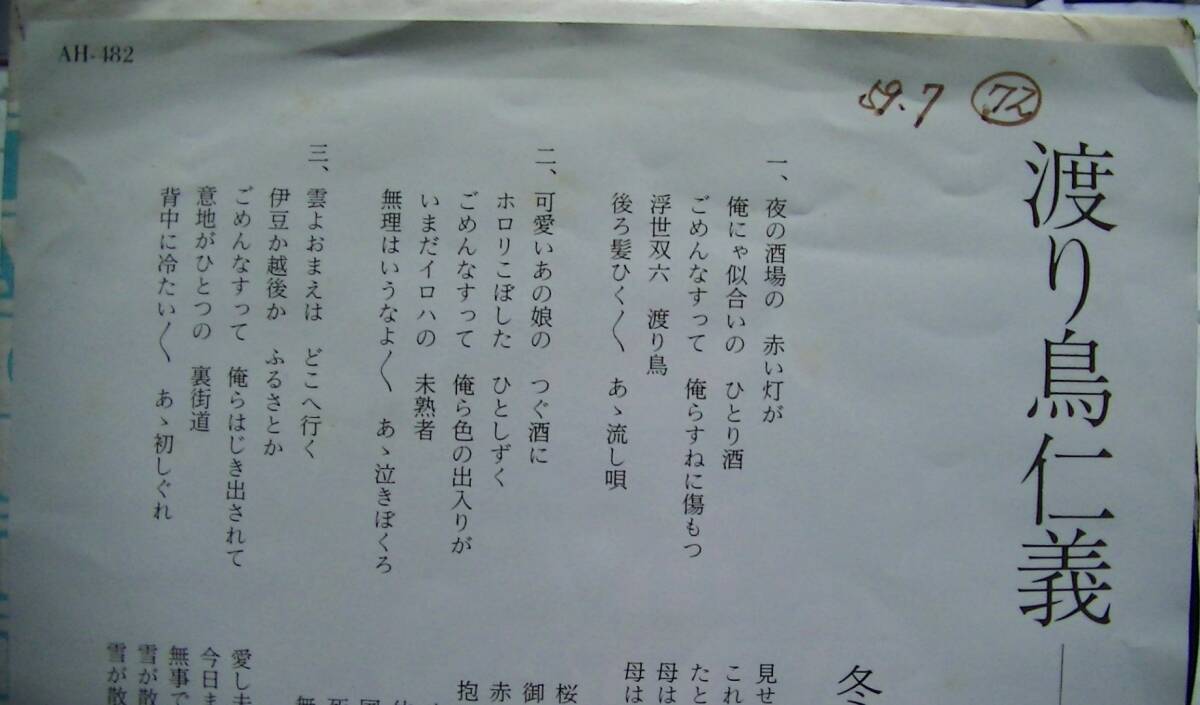 AH-482
59.7 ㋜
渡り鳥仁義
一、夜の酒場の　赤い灯が
俺にゃ似合いの　ひとり酒
ごめんなすって　俺らすねに傷もつ
浮世双六　渡り鳥
後ろ髪ひく〱　あゝ流し唄
二、可愛いあの娘の　つぐ酒に
ホロリこぼした　ひとしずく
ごめんなすって　俺ら色の出入りが
いまだイロハの　未熟者
無理はいうなよ〱　あゝ泣きぼくろ
三、雲よおまえは　どこへ行く
伊豆か越後か　ふるさとか
ごめんなすって　俺らはじき出されて
意地がひとつの　裏街道
背中に冷たい〱　あゝ初しぐれ
冬
見せ
これ
たと
母は
母は
桜
御
赤
抱
愛し
今日ま
無事で
雪が散
雪が散